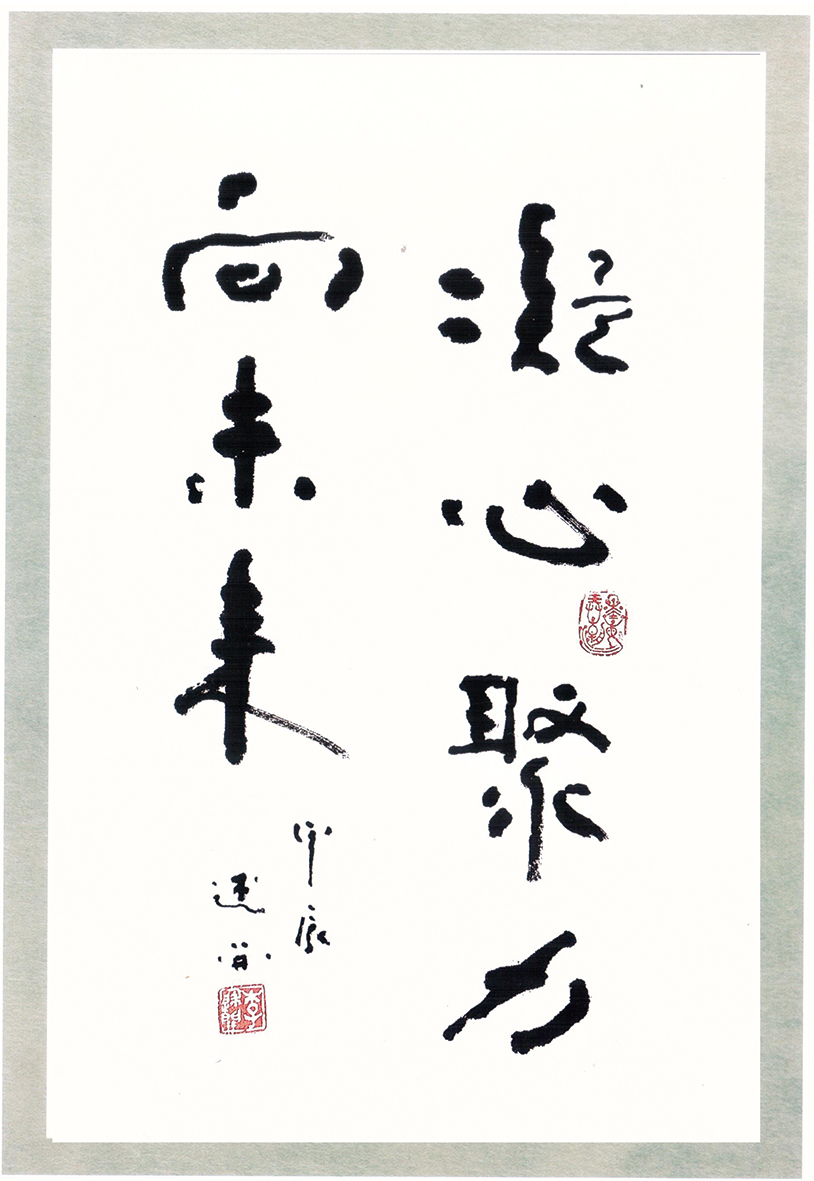 凝心聚力
向未来
甲辰
述善